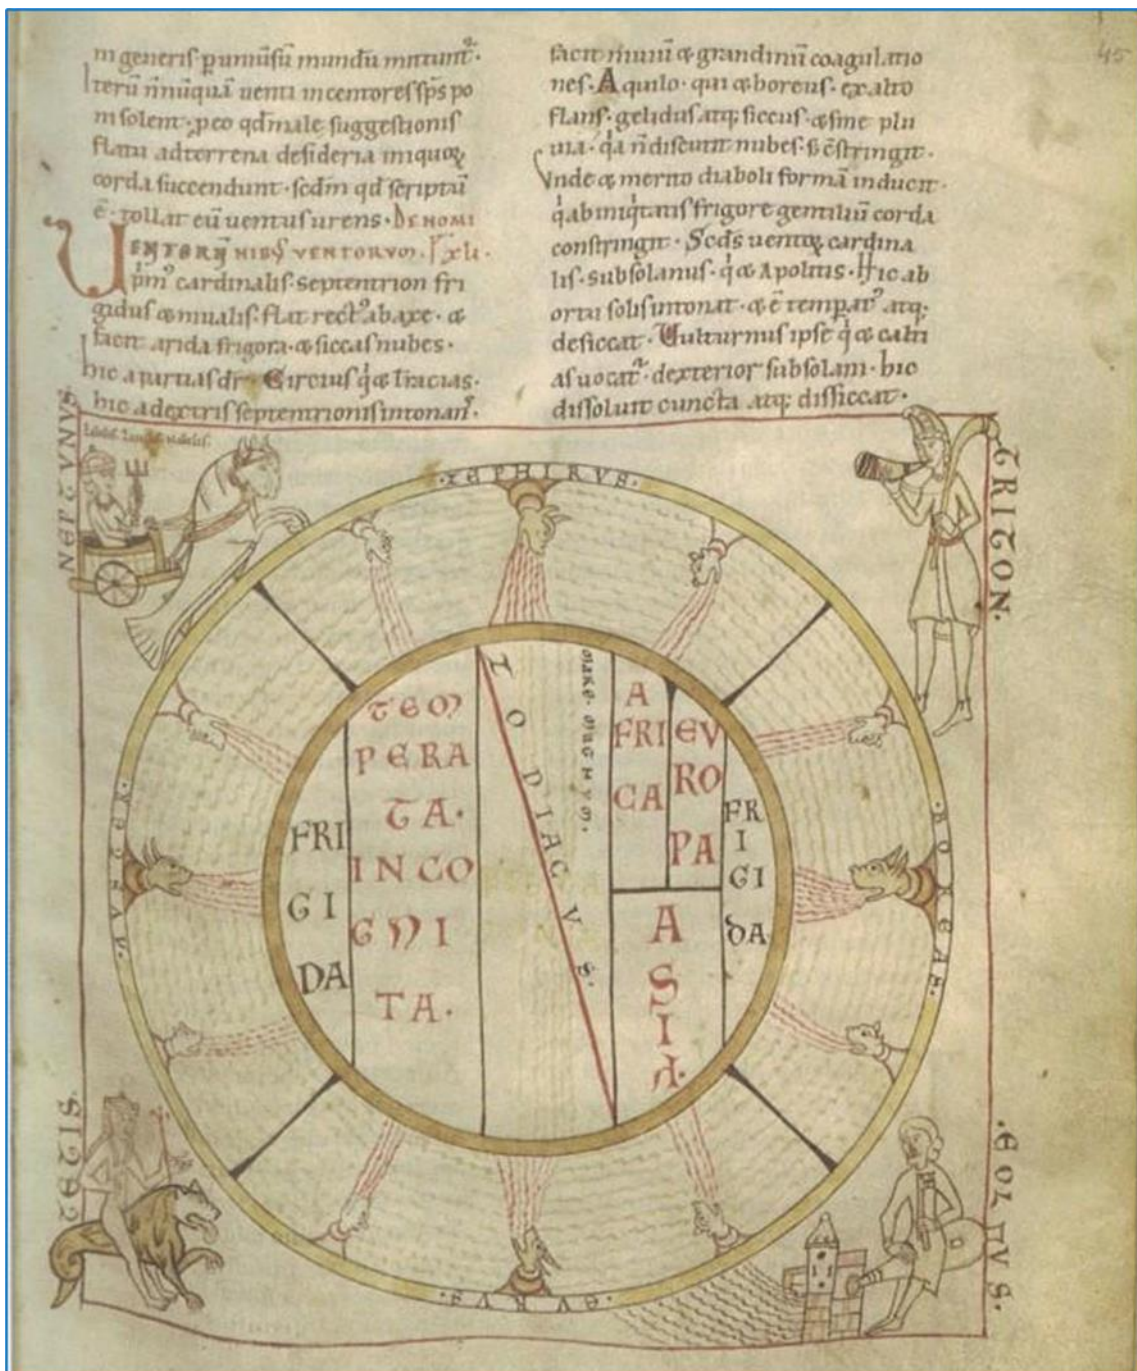 in generis ꝑ uniuͥsū mundū mittunt᷑·
Iterū nōnūquā uenti incentores sp̄s po
ni solent· ꝑ eo qd male suggestionis
flatu ad terrena desideria iniquoꝝ
corda succendunt· scdm qd scriptū
ē· tollat eū uentus urens· DE NOMI
NIBꝰ VENTORVM· xli·
VENTORŪ
pͥmꝰ cardinalis· septentrion fri
gidus & niualis· flat rectꝰ ab axe· &
facit arida frigora· & siccas nubes·
hic aparcias dr̄· Circius qͥ & tracias·
hic a dextris septentrionis intonans
facit niuiū & grandinū coagulatio
nes· Aquilo· qui & boreus· ex alto
flans· gelidus atq; siccus· & sine plu
uia· qͥa n̄ discutit nubes· s; c̄stringit·
Vnde & merito diaboli formā induit·
qͥ ab iniqͥtatis frigore gentiliū corda
constringit· Scds uentoꝝ cardina
lis· subsolanus· qͥ & apolitis· Hic ab
ortu solis intonat· & ē temꝑatꝰ atq;
desiccat· Vulturnus ipse qͥ & calci
as uocat᷑· dexterior subsolani· hic
dissoluit cuncta atq; dissiccat·
45
NEPTVNVS
TRITON·
ZEPHIRVS·
ZODIACVS·
MARE·
A
FRI
CA
EV
RO
PA
TEM
PERA
TA·
INCO
GNI
TA·
FRI
GI
DA
FR
I
GI
DA
A
S
I
A·
·AVSTER·
·BOREAS·
·EVRVS·
·EOLVS·